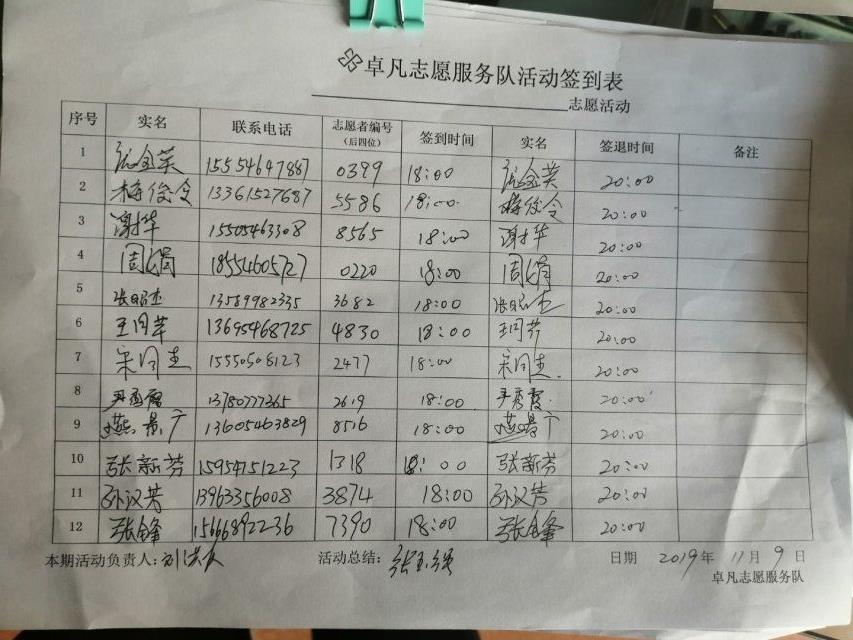 卓凡志愿服务队活动签到表
志愿活动
序号 实名 联系电话 志愿者编号（后四位） 签到时间 实名 签退时间 备注
1 15554647887 0399 18:00 20:00
2 梅俊令 13361527687 5586 18:00 梅俊令 20:00
3 谢华 15505463308 8565 18:00 谢华 20:00
4 周娟 18554605727 0220 18:00 周娟 20:00
5 张昭杰 13589982335 3682 18:00 张昭杰 20:00
6 王同芹 13695468725 4830 18:00 王同芹 20:00
7 宋同圭 15550508123 2477 18:00 宋同圭 20:00
8 尹秀霞 13780777365 2619 18:00 尹秀霞 20:00
9 燕景广 13605463829 8516 18:00 燕景广 20:00
10 张新芬 15954751223 1318 18:00 张新芬 20:00
11 孙汉芳 13963356008 3874 18:00 孙汉芳 20:00
12 张锋 15666892236 7390 18:00 张锋 20:00
本期活动负责人: 活动总结: 张玉强 日期 2019年11月9日
卓凡志愿服务队